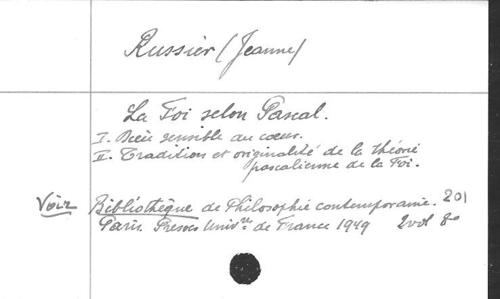 Russier (Jeanne)
La Foi selon Pascal.
I. Dieu sensible au cœur.
II. Tradition et originalité de la théorie
pascalienne de la Foi.
Voir Bibliothèque de Philosophie contemporaine. 201
Paris. Presses Univ.re de France 1949 2 vol 8º